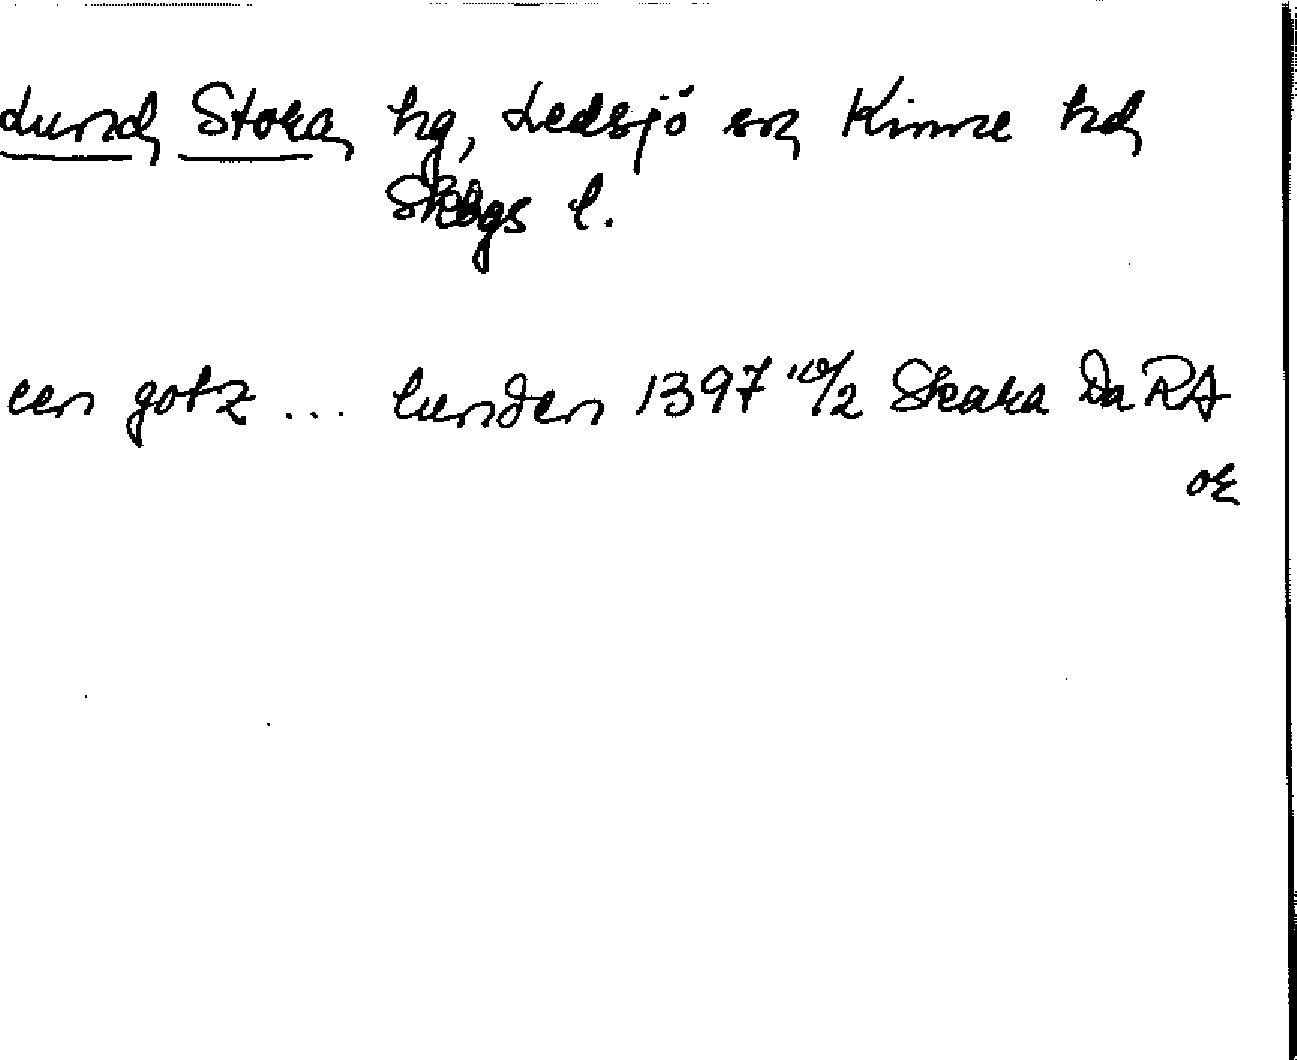 Lund, Stora, hg, Ledsjö sn, Kinne hd,
Skbgs l.
een gotz ... lunden 1397 10/2 Skara Da RA
or